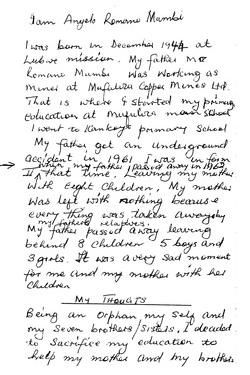 I am Angelo Romano Mumbi
I was born in December 1944 at
Lubwe mission. My father Mr
Romano Mumbi was working as
Miner at Mufulira Copper Mines Ltd.
That is where I started my primary
Education at Mufulira main school
I went to Kankoyo primary School
My father got an underground
accident in 1961 I was in form
when my father passed away in 1962
II that time. Leaving my mother
with Eight Children, My mother
was left with nothing because
every thing was taken away by
my fathers relatives.
My father passed away leaving
behind 8 children 5 boys and
3 girls. It was a very sad moment
for me and my mother with her
Children
My Thoughts
Being an Orphan, my self and
my Seven brothers/sisters, I decided
to Sacrifice my education to
help my mother and my brothers